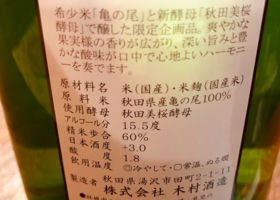 希少米「亀の尾」と新酵母「秋田美桜
酵母」で醸した限定企画品。爽やかな
果実様の香りが広がり、深い旨みと豊
かな酸味が口中で心地よいハーモニ
ーを奏でます。
原材料名 米(国産)・米麹(国産米)
原料米 秋田県産亀の尾100%
使用酵母 秋田美桜酵母
アルコール分 15.5度
精米歩合 60%
日本酒度 +3.0
酸度 1.8
飲用温度 ◎冷やして・○常温、ぬる燗
製造者 秋田県湯沢市田町2-1-11
株式会社 木村酒造